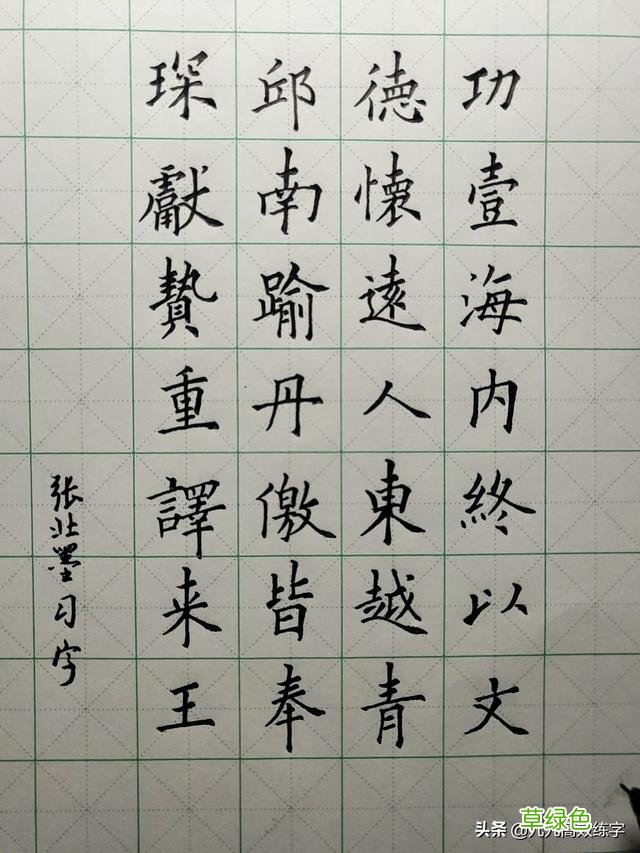 功壹海内終以文
德懷遠人東越青
邱南踰丹儌皆奉
琛獻贄重譯来王
张北墨习字
草绿色
头条 @九九高效练字